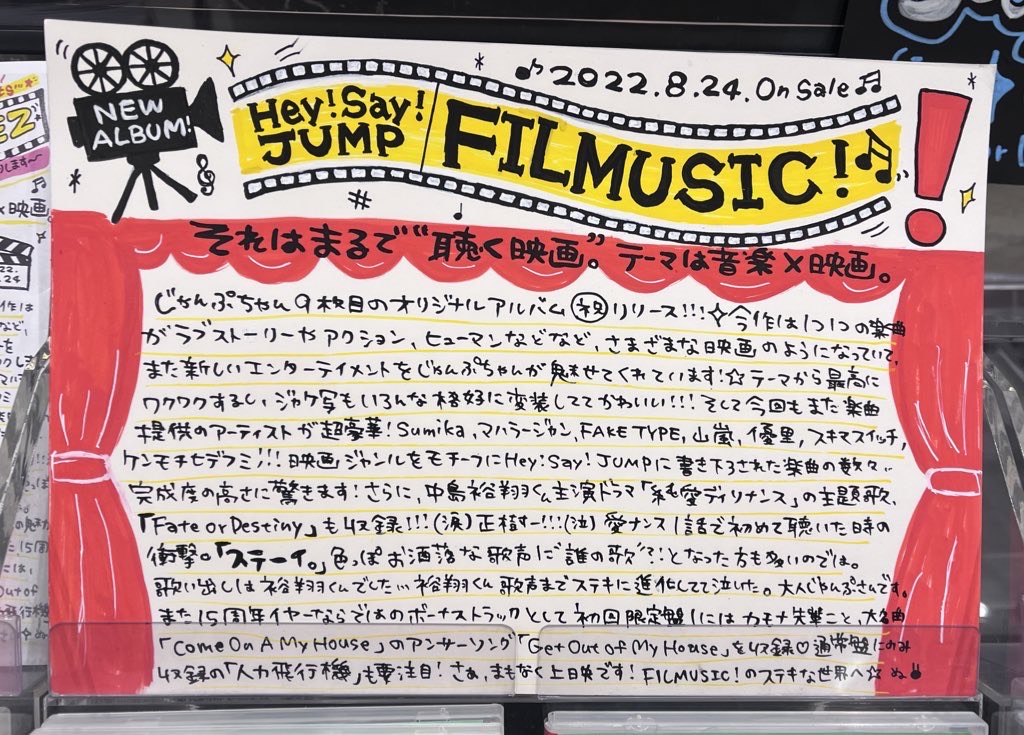 NEW
ALBUM!
2022.8.24. On Sale
Hey!Say!
JUMP
FILMUSIC!
それはまるで"聴く映画"。テーマは音楽×映画。
じゃんぷちゃん9枚目のオリジナルアルバム㊗リリース!!!✧今作は1つ1つの楽曲
がラブストーリーやアクション、ヒューマンなどなど、さまざまな映画のようになっていて、
また新しいエンターテイメントをじゃんぷちゃんが魅せてくれています!☆テーマから最高に
ワクワクするし、ジャケ写もいろんな格好に変装しててかわいい!!!そして今回もまた楽曲
提供のアーティストが超豪華!Sumika,マハラージャン,FAKE TYPE,山嵐,優里,スキマスイッチ,
ケンモチヒデフミ!!!映画ジャンルをモチーフにHey!Say!JUMPに書き下ろされた楽曲の数々…
完成度の高さに驚きます!さらに、中島裕翔くん主演ドラマ「純愛ディソナンス」の主題歌、
「Fate or Destiny」も収録!!!(涙)正樹ー!!!(泣)愛ナンス1話で初めて聴いた時の
衝撃。「ステーイ。」色っぽお洒落な歌声に"誰の歌"?!となった方も多いのでは。
歌い出しは裕翔くんでした…裕翔くん歌声までステキに進化してて泣いた。大人じゃんぷさんです。
また15周年イヤーならではのボーナストラックとして初回限定盤1にはカモナ先輩こと、大名曲
「Come On A My House」のアンサーソング「Get Out of My House」を収録♡通常盤にのみ
収録の「人力飛行機」も要注目!さぁ、まもなく上映です!FILMUSIC!のステキな世界へ☆ ぬ